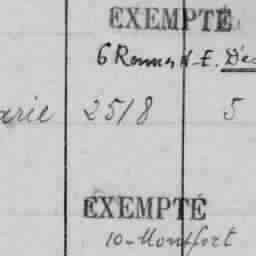 EXEMPTÉ
6 Rennes N.-E. Dé
arie 25/8 5
EXEMPTÉ
10-Montfort